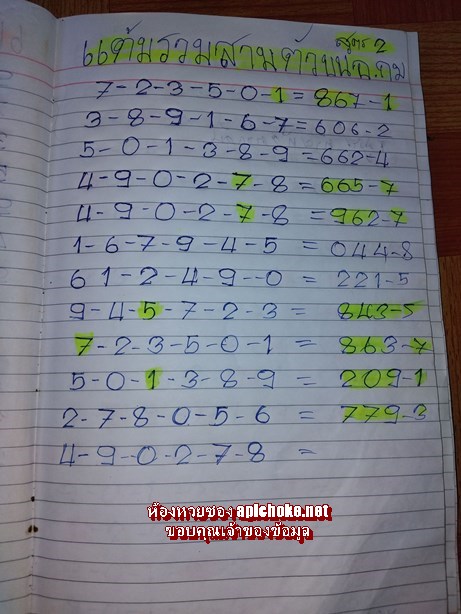 สูตร 2
แต้มรวมสามตัวบน
7-2-3-5-0-1=867-1
3-8-9-1-6-7=606-2
5-0-1-3-8-9=662-4
4-9-0-2-7-8=665-7
4-9-0-2-7-8=962-7
1-6-7-9-4-5 = 044-8
6 1-2-4-9-0 = 221-5
9-4-5-7-2-3 = 843-5
7-2-3-5-0-1 = 863-7
5-0-1-3-8-9 = 209-1
2-7-8-0-5-6 = 779-3
4-9-0-2-7-8 =
ห้องหวยซอง apichoke.net
ขอบคุณเจ้าของข้อมูล